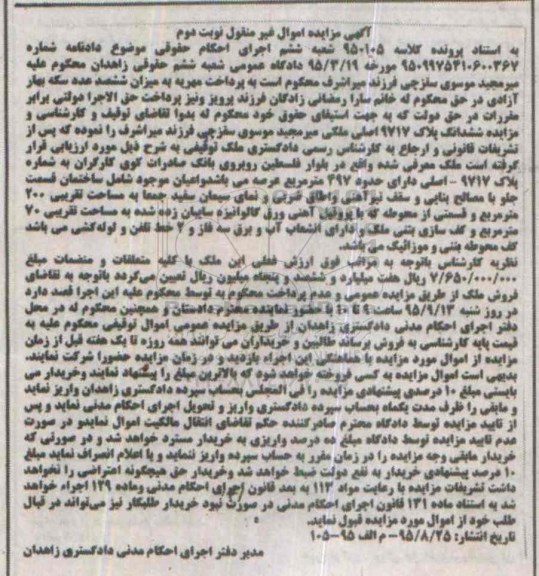 آگهی مزایده اموال غیر منقول نوبت دوم
به استناد پرونده کلاسه ۹۵۰۱۰۵ شعبه ششم اجرای احکام حقوقی موضوع دادنامه شماره
۹۵۰۹۹۷۵۴۱۰۶۰۰۳۶۷ مورخه ۹۵/۳/۱۹ دادگاه عمومی شعبه ششم حقوقی زاهدان محکوم علیه
میرمجید موسوی سفزچی فرزند میراشرف محکوم است به پرداخت مهریه به میزان ششصد عدد سکه بهار
آزادی در حق محکوم له خانم سارا رمضانی زادگان فرزند پرویز ونیز پرداخت حق الاجرا دولتی برابر
مقررات در حق دولت که به جهت استیفای حقوق خود محکوم له بدوا تقاضای توقیف و کارشناسی و
مزایده ششدانگ پلاک ۹۷۱۷ اصلی ملکی میرمجید موسوی سفزچی فرزند میراشرف را نموده که پس از
تشریفات قانونی و ارجاع به کارشناس رسمی دادگستری ملک توقیفی به شرح ذیل مورد ارزیابی قرار
گرفته است ملک معرفی شده واقع در بلوار فلسطین روبروی بانک صادرات کوی کارگران به شماره
پلاک ۹۷۱۷ - اصلی دارای حدود ۴۹۷ مترمربع عرصه می باشدواعیان موجود شامل ساختمان قسمت
جلو با مصالح بنایی و سقف تیرآهنی وطاق ضربی و نمای سیمان سفید جمعا به مساحت تقریبی ۲۰۰
مترمربع و قسمتی از محوطه که با پروفیل آهنی ورق گالوانیزه سایبان زده شده به مساحت تقریبی ۷۰
مترمربع و کف سازی بتنی ملک دارای انشعاب آب و برق سه فاز و ۲ خط تلفن و لوله کشی می باشد
کف محوطه بتنی و موزائیک می باشد.
نظریه کارشناس باتوجه به مراتب فوق ارزش فعلی این ملک با کلیه متعلقات و منضمات مبلغ
۷/۶۵۰/۰۰۰/۰۰۰ ریال هفت میلیارد و ششصد و پنجاه میلیون ریال تعیین می‌گردد باتوجه به تقاضای
فروش ملک از طریق مزایده عمومی و عدم پرداخت محکوم به توسط محکوم علیه این اجرا قصد دارد
در روز شنبه ۹۵/۹/۱۳ ساعت ۹ تا ۱۰ با حضور نماینده محترم دادستان و همچنین محکوم له در محل
دفتر اجرای احکام مدنی دادگستری زاهدان از طریق مزایده عمومی اموال توقیفی محکوم علیه به
قیمت پایه کارشناسی به فروش برساند طالبین و خریداران می توانند همه روزه تا یک هفته قبل از زمان
مزایده از اموال مورد مزایده با هماهنگی این اجراء بازدید و در زمان مزایده حضورا شرکت نمایند.
بدیهی است اموال مزایده به کسی فروخته خواهد شود که بالاترین مبلغ را پیشنهاد نمایند وخریدار می
بایستی مبلغ ۱۰ درصدی پیشنهادی مزایده را فی المجلس بحساب سپرده دادگستری زاهدان واریز نماید
و مابقی را ظرف مدت یکماه بحساب سپرده دادگستری واریز و تحویل اجرای احکام مدنی نماید و پس
از تایید مزایده توسط دادگاه محترم صادرکننده حکم تقاضای انتقال مالکیت اموال نمایدو در صورت
عدم تایید مزایده توسط دادگاه مبلغ ده درصد واریزی به خریدار مسترد خواهد شد و در صورتی که
خریدار مابقی وجه مزایده را در زمان مقرر به حساب سپرده واریز ننماید و یا اعلام انصراف نماید مبلغ
۱۰ درصد پیشنهادی خریدار به نفع دولت ضبط خواهد شد وخریدار حق هیچگونه اعتراضی را نخواهد
داشت تشریفات مزایده با رعایت مواد ۱۱۳ به بعد قانون اجرای احکام مدنی وماده ۱۲۹ اجراء خواهد
شد به استناد ماده ۱۳۱ قانون اجرای احکام مدنی در صورت نبود خریدار طلبکار نیز می‌تواند در قبال
طلب خود از اموال مورد مزایده قبول نماید.
تاریخ انتشار: ۹۵/۸/۲۵ - م الف ۹۵-۱۰۵
مدیر دفتر اجرای احکام مدنی دادگستری زاهدان